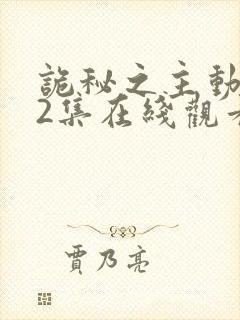 詭秘之主動
2集在綫觀
賈乃亮